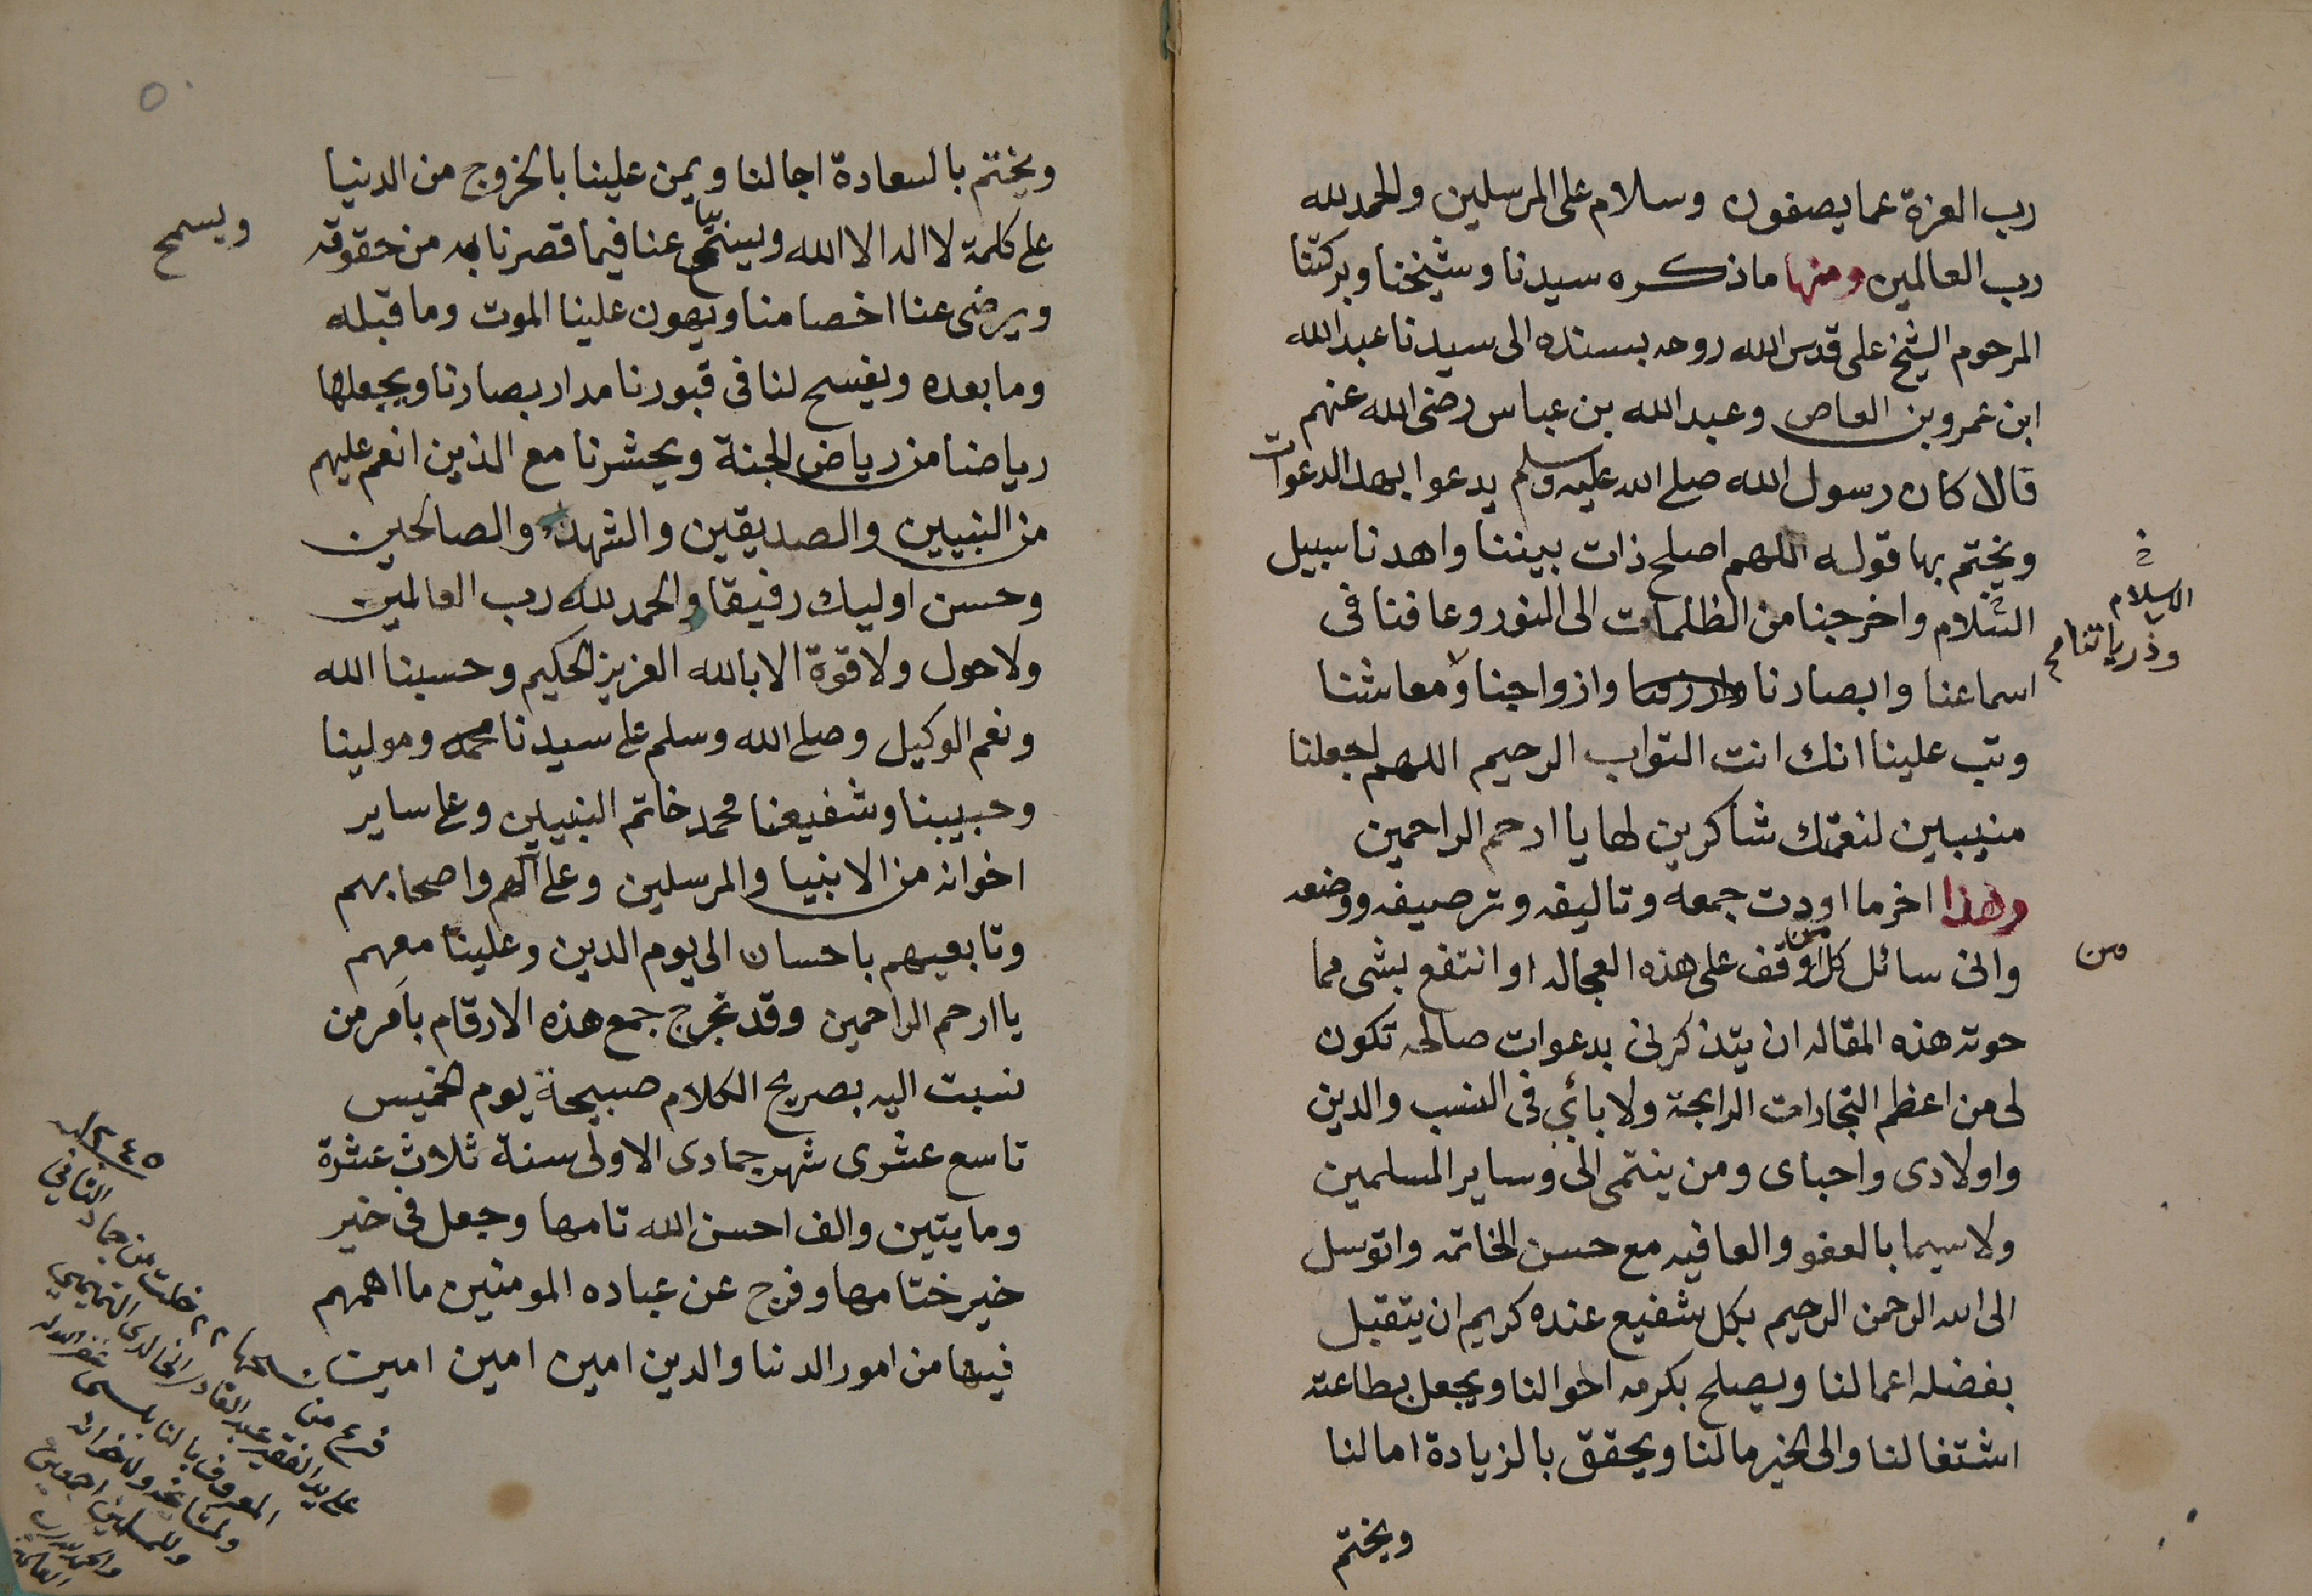 رب العزة عما يصفون وسلام على المرسلين والحمد لله
رب العالمين ومنها ما ذكره سيدنا وشيخنا وبركتنا
المرحوم الشيخ على قدس الله روحه بسنده الى سيدنا عبد الله
ابن عمرو بن العاص وعبد الله بن عباس رضى الله عنهم
قالا كان رسول الله صلى الله عليه وسلم يدعوا بهذا الدعوات
ويختم بها قوله اللهم اصلح ذات بيننا واهدنا سبيل
السلام واخرجنا من الظلمات الى النور وعافنا فى
السلام
اسماعنا وابصارنا وازواجنا ومعاشنا
وذرياتنا صح
وتب علينا انك انت التواب الرحيم اللهم اجعلنا
منيبين لنعمتك شاكرين لها يا ارحم الراحمين
وهذا اخر ما اردت جمعه وتاليفه وترصيفه ووضعه
وانى سائل كل من وقف على هذه العجاله او انتفع بشى مما
من
حوته هذه المقاله ان يتذكرنى بدعوات صالحه تكون
لى من اعظم التجارات الرابحة ولابائي فى النسب والدين
واولادى واحباى ومن ينتمى الى وساير المسلمين
ولاسيما بالعفو والعافيه مع حسن الخاتمه واتوسل
الى الله الرحمن الرحيم بكل شفيع عنده كريم ان يتقبل
بفضله اعمالنا ويصلح بكرمه احوالنا ويجعل بطاعته
اشتغالنا والى الخير مالنا ويحقق بالزيادة امالنا
ويختم
ويختم بالسعادة اجالنا ويمن علينا بالخروج من الدنيا
على كلمة لا اله الا الله عنا فيما قصرنا به من حقوقه
ويسمح
ويرضى عنا اخصامنا ويهون علينا الموت وما قبله
وما بعده ويفسح لنا فى قبورنا مدار بصارنا ويجعلها
رياضنا من رياض الجنة ويحشرنا مع الذين انعم عليهم
من النبيين والصديقين والشهدا والصالحين
وحسن اوليك رفيقا والحمد لله رب العالمين
ولا حول ولا قوة الا بالله العزيز الحكيم وحسبنا الله
ونعم الوكيل وصلى الله وسلم على سيدنا محمد ومولينا
وحبيبنا وشفيعنا محمد خاتم النبيين وعلى ساير
اخوانه من الانبيا والمرسلين وعلى آلهم واصحابهم
وتابعيهم باحسان الى يوم الدين وعلينا معهم
يا ارحم الراحمين وقد تجرج جمع هذه الارقام بامر من
نسبت اليه بصريح الكلام صبيحة يوم الخميس
تاسع عشرى شهر جمادى الاولى سنة ثلاث عشرة
ومايتين والف احسن الله تامها وجعل فى خير
خير ختامها وفرج عن عباده المومنين ما اهمهم
فيها من امور الدنيا والدين امين امين امين
فرغ من نساختها ٢٢ خلت من جماد الثاني
١٢٤٥
على يد الفقير عبد القادر الخالدى التميمي
المعروف غفر الله له
ولمشايخه ولاخوانه
وللمسلمين اجمعين
والحمد لله رب
العالمين